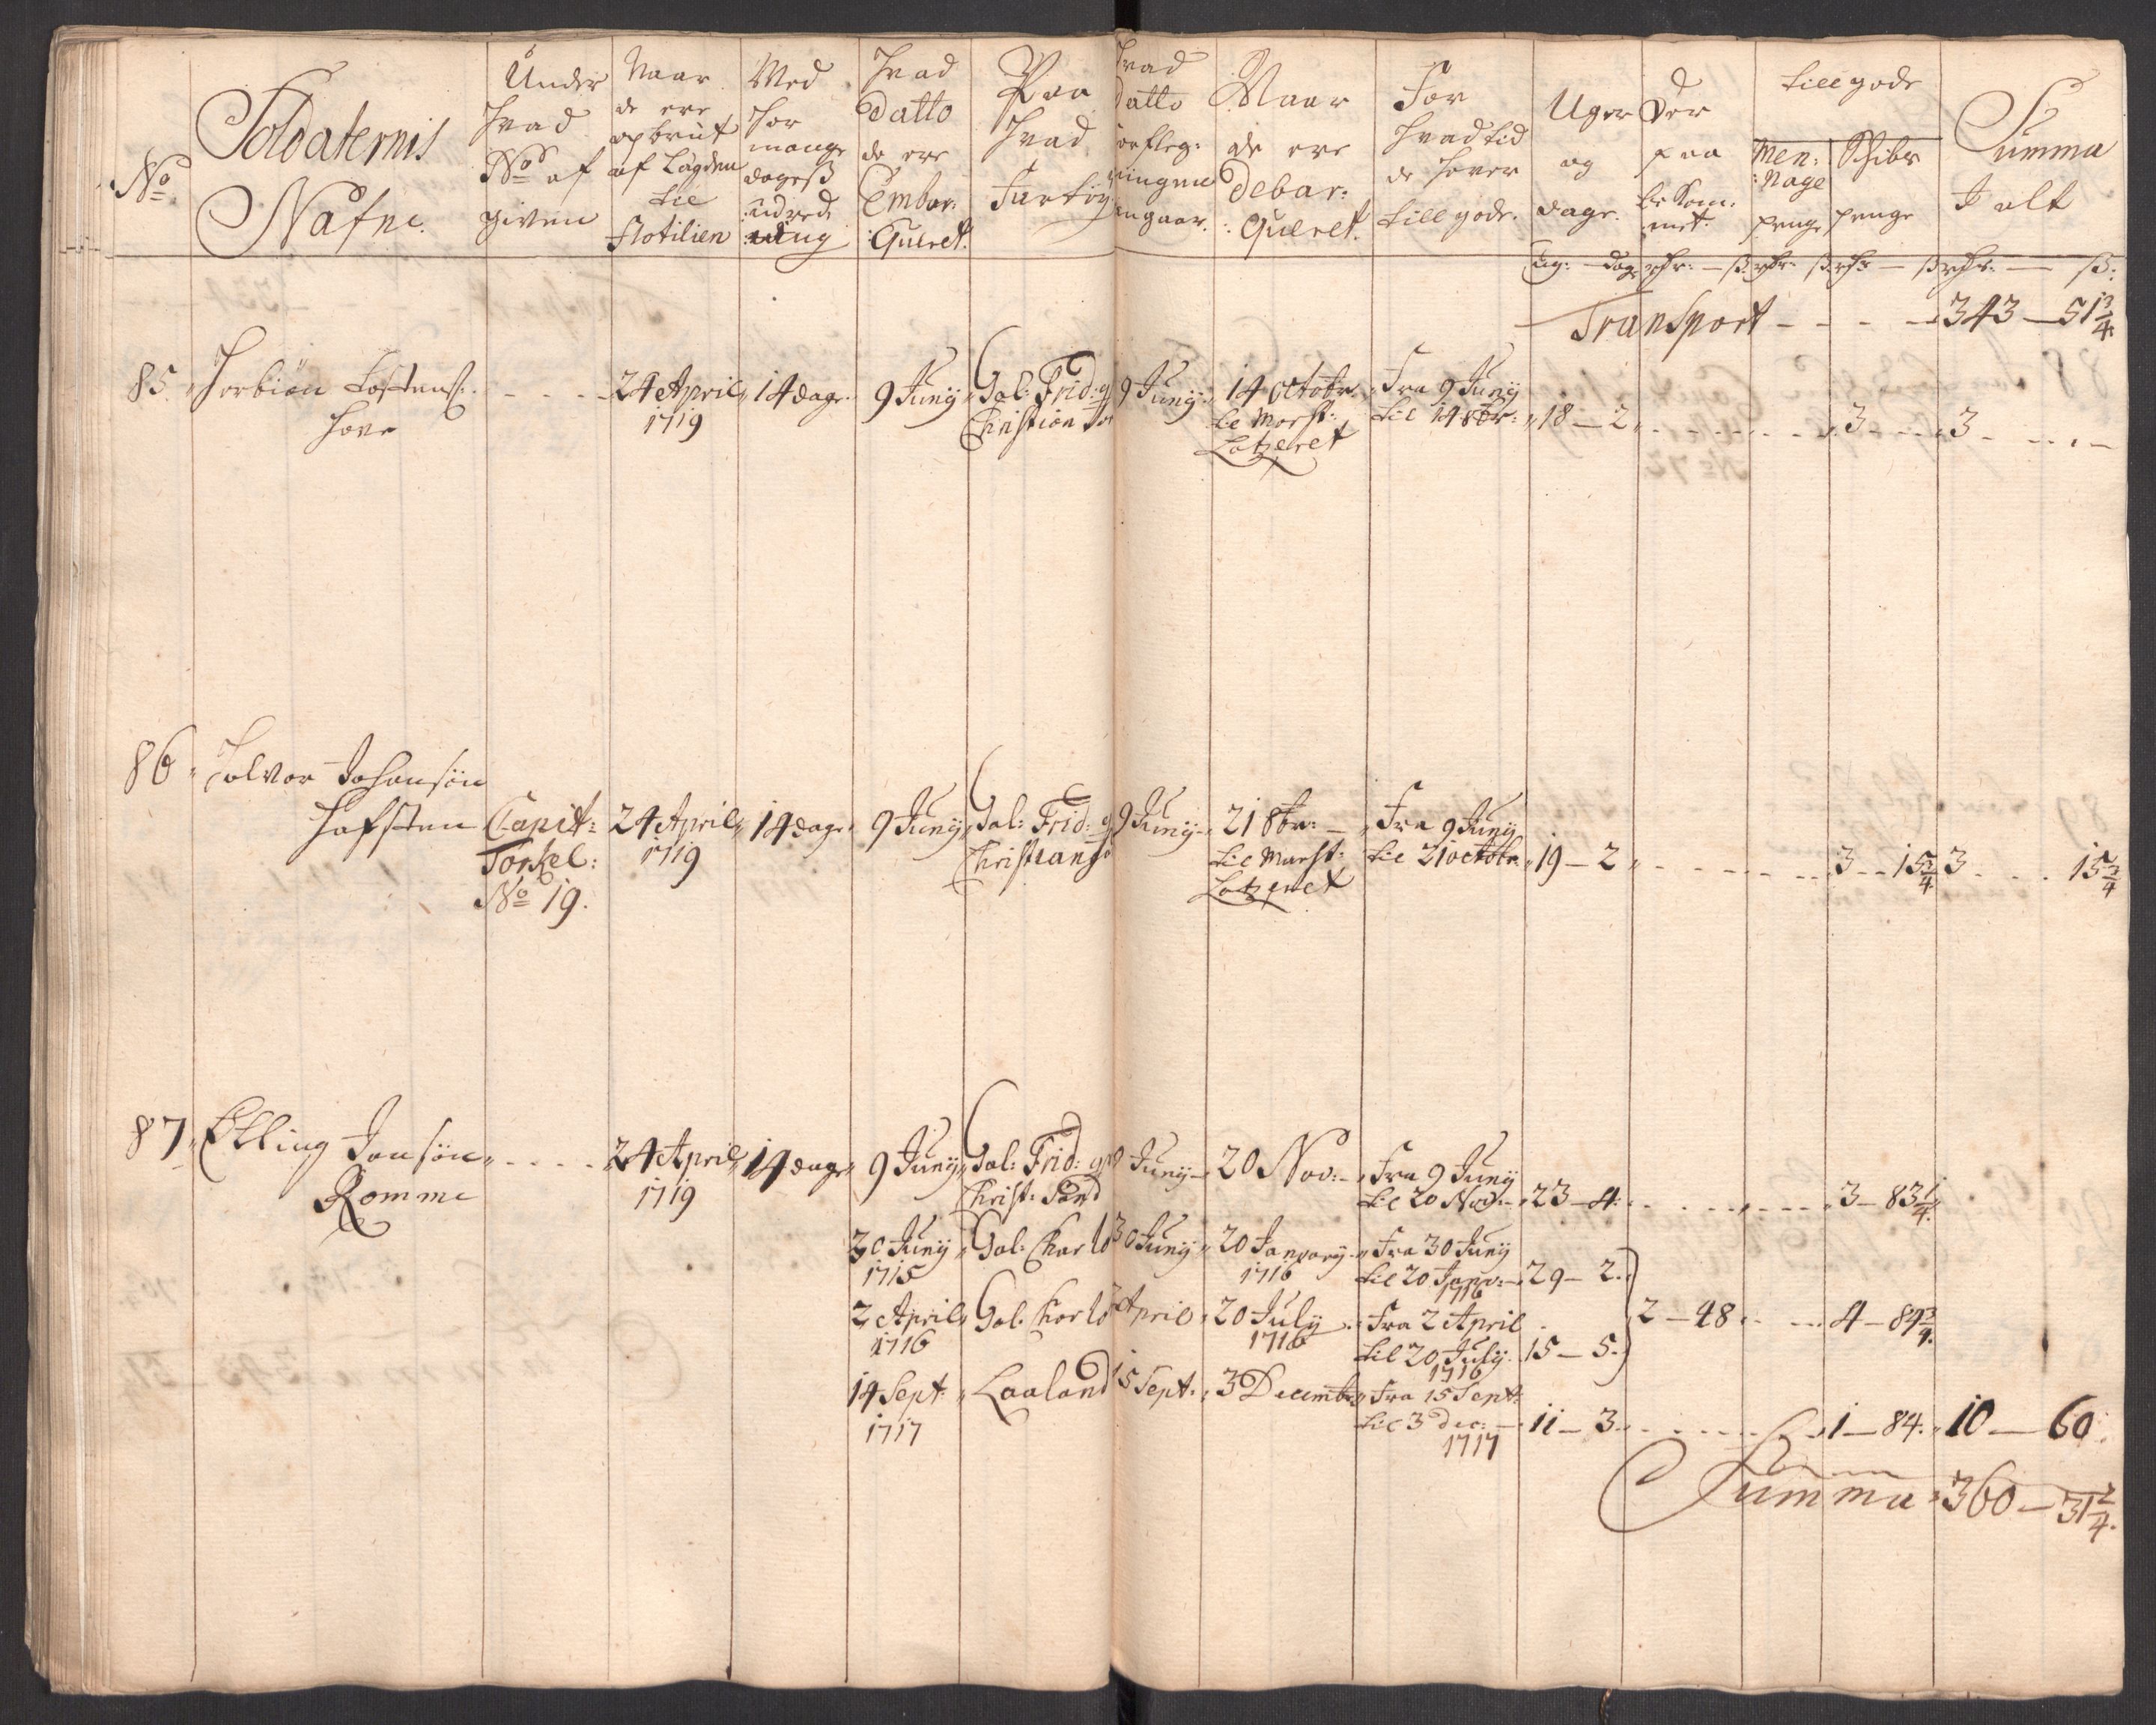 No
Soldaternis
Nafne.
Under
hvad
No af
given
Naar
de ere
opbrut
af Lagden
til
flotilien
Med
hor
mange
dagesß
udred
ning
hvad
Datto
de ere
Embar:
Queret.
Paa
hvad
Fartøy
hvad
Datto
forfleg:
ningen
angaar.
Naar
de ere
Debar:
Queret.
For
hvad tid
de hover
till gode.
Uger
og
dage.
Der
paa
be kom:
met.
till gode
Men:
nage
penge
Schibs
penge
Summa
I alt
ug: dag rdr: ß rdr: ß rdr ß rdr: ß:
Transport - - - - 343 - 51 3/4
85 Torbiön Tostens:
Hove
- - - - 24 April
1719
14 dage
9 Juny
Gal: Frid: g
Christian
9 Juny
14 octobr.
til Marst:
Latzeret
Fra 9 Juny
til 14 8br:
18 - 2 - - - 3 - - - 3 - - -
86 Halvor Johansön
Hafsten
Capit:
Torkel:
No 19.
24 April
1719
14 dage
9 Juny
Gal: Frid: g
Christians
9 Juny
21 8br:
til Marst:
Latzeret
Fra 9 Juny
til 21 octobr.
19 - 2 - - - 3 - 15 3/4 3 - - - 15 3/4
87 Elling Jonsön
Romme
- - - - 24 April
1719
14 dage
9 Juny
Gal: Frid: g
Christ: Sand
9 Juny
20 Nov:
Fra 9 Juny
til 20 Nov:
23 - 4 - - - 3 - 83 1/4
30 Juny
1715
Gal: Charlo
30 Juny
20 January
1716
Fra 30 Juny
til 20 Janv:
1716
29 - 2
2 April
1716
Gal: Charlo
2 April
20 July
1716
Fra 2 April
til 20 July
1716
15 - 5
2 - 48 - - - 4 - 84 3/4
14 Sept:
1717
Laaland
15 Sept:
3 Decembr
Fra 15 Sept:
til 3 dec:
1717
11 - 3 - - - 1 - 84. 10 - 60
Summa 360 - 31 2/4